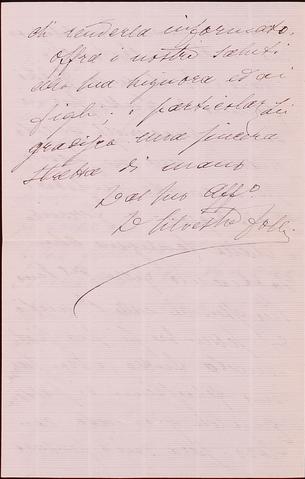 di renderla informato.
Offra i nostri saluti
alla sua Signora ed ai
figli; i particolari
gradisca una sincera
stretta di mano
Dal suo Aff.o
D Silvestro